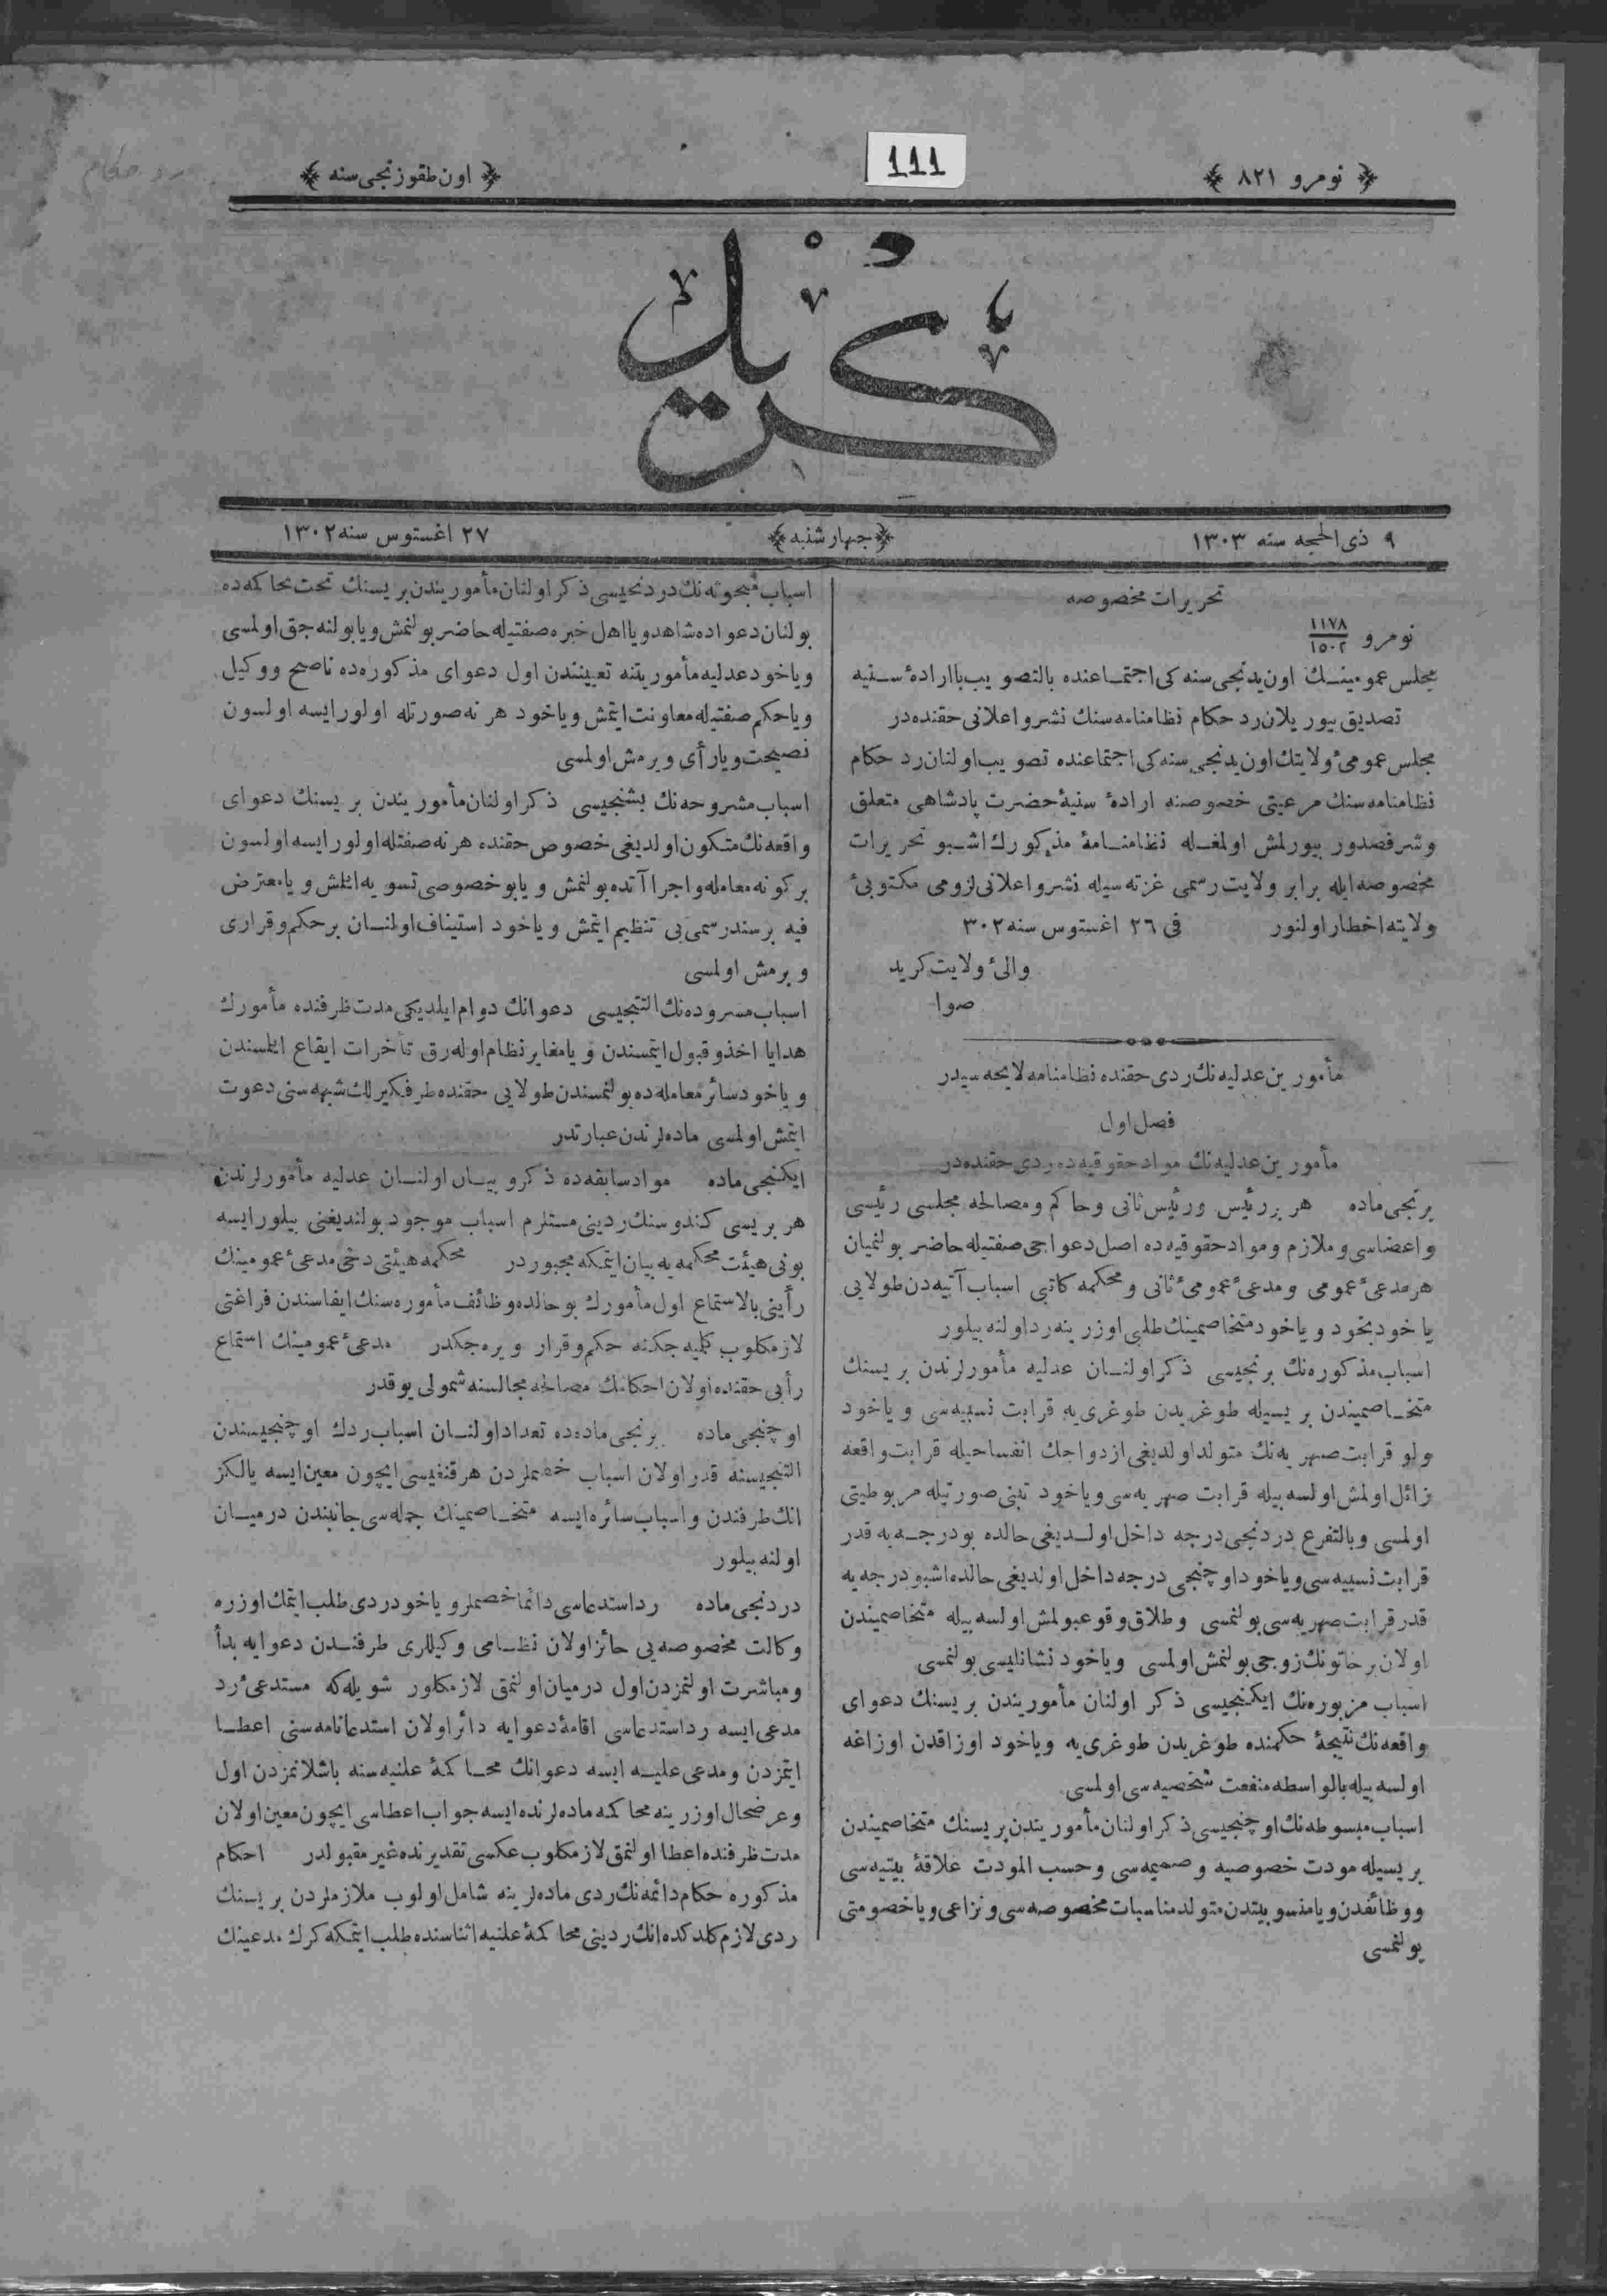 نومرو ٨٢١
111
اون طقوزنجی سنه
كريد
٩ ذی الحجه سنه ١٣٠٣
چهارشنبه
٢٧ اغستوس سنه ١٣٠٢
تحريرات مخصوصه
نومرو ١١٧٨/١٥٠٢
مجلس عمومينك اون يدنجی سنه كی اجتماعنده بالتصويب بااراده سنيه
تصديق بيوريلان رد حكام نظامنامه سنك نشر و اعلانی حقنده در
مجلس عمومیٔ ولايتك اون يدنجی سنه كی اجتماعنده تصويب اولنان رد حكام
نظامنامه سنك مرعيتی خصوصنه ارادهٔ سنيهٔ حضرت پادشاهی متعلق
وشرفصدور بيورلمش اولمغله نظامنامهٔ مذكورك اشبو تحريرات
مخصوصه ايله برابر ولايت رسمی غزته سيله نشر و اعلانی لزومی مكتوبیٔ
ولايته اخطار اولنور فی ٢٦ اغستوس سنه ٣٠٢
والیٔ ولايت كريد
صوا
مأمورين عدليه نك ردی حقنده نظامنامه لايحه سيدر
فصل اول
مأمورين عدليه نك مواد حقوقيه ده ردی حقنده در
برنجی ماده هر بر رئيس ورئيس ثانی وحاكم ومصالحه مجلسی رئيسی
واعضاسی وملازم ومواد حقوقيه ده اصل دعواجی صفتيله حاضر بولنميان
هر مدعیٔ عمومی ومدعیٔ عمومیٔ ثانی ومحكمه كاتبی اسباب آتيه دن طولایی
يا خود بخود وياخود متخاصمينك طلبی اوزرينه رد اولنه بيلور
اسباب مذكوره نك برنجيسی ذكر اولنان عدليه مأمورلرندن بريسنك
متخاصميندن بريسيله طوغريدن طوغری يه قرابت نسبيه سی وياخود
ولو قرابت صهريه نك متولد اولديغی ازدواجك انفساخيله قرابت واقعه
زائل اولمش اولسه بيله قرابت صهريه سی وياخود تبنی صورتيله مربوطيتی
اولمسی وبالتفرع دردنجی درجه داخل اولديغی حالده بودرجه يه قدر
قرابت نسبيه سی وياخود اوچنجی درجه داخل اولديغی حالده اشبو درجه يه
قدر قرابت صهريه سی بولنمسی وطلاق وقوعبولمش اولسه بيله متخاصميندن
اولان بر خاتونك زوجی بولنمش اولمسی وياخود نشانليسی بولنمسی
اسباب مزبوره نك ايكنجيسی ذكر اولنان مأموريندن بريسنك دعوای
واقعه نك نتيجهٔ حكمنده طوغريدن طوغری يه وياخود اوزاقدن اوزاغه
اولسه بيله بالواسطه منفعت شخصيه سی اولمسی
اسباب مبسوطه نك اوچنجيسی ذكر اولنان مأموريندن بريسنك متخاصميندن
بريسيله مودت خصوصيه وصميمه سی وحسب المودت علاقهٔ بيتيه سی
ووظائفدن ويا منسوبيتدن متولد مناسبات مخصوصه سی ونزاعی ويا خصومتی
بولنمسی
اسباب مبحوثه نك دردنجيسی ذكر اولنان مأموريندن بريسنك تحت محاكمه ده
بولنان دعواده شاهد ويا اهل خبره صفتيله حاضر بولنمش ويا بولنه جق اولمسی
وياخود عدليه مأموريتنه تعييندن اول دعوای مذكوره ده ناصح ووكيل
ويا حكم صفتيله معاونت ايتمش وياخود هر نه صورتله اولور ايسه اولسون
نصيحت ويا رأی ويرمش اولمسی
اسباب مشروحه نك بشنجيسی ذكر اولنان مأموريندن بريسنك دعوای
واقعه نك متكون اولديغی خصوص حقنده هر نه صفتله اولور ايسه اولسون
بركونه معامله و اجراآتده بولنمش ويا بو خصوصی تسويه ايلمش ويا معترض
فيه بر سند رسمی یی تنظيم ايتمش وياخود استيناف اولنان بر حكم و قراری
ويرمش اولمسی
اسباب مسروده نك التنجيسی دعوانك دوام ايلديكی مدت ظرفنده مأمورك
هدايا اخذ و قبول ايتمسندن ويا مغاير نظام اوله رق تأخرات ايقاع ايلمسندن
وياخود سائر معامله ده بولنمسندن طولایی حقنده طرفكيرلك شبهه سنی دعوت
ايتمش اولمسی ماده لرندن عبارتدر
ايكنجی ماده مواد سابقه ده ذكر و بيان اولنان عدليه مأمورلرندن
هر بريسی كندوسنك ردينی مستلزم اسباب موجود بولنديغنی بيلور ايسه
بونی هيئت محكمه يه بيان ايتمكه مجبوردر محكمه هيئتی دخی مدعیٔ عمومينك
رأينی بالاستماع اول مأمورك بو حالده وظائف مأموره سنك ايفاسندن فراغتی
لازمكلوب كلميه جكنه حكم وقرار ويره جكدر مدعیٔ عمومينك استماع
رأیی حقنده اولان احكامك مصالحه مجالسنه شمولی يوقدر
اوچنجی ماده برنجی ماده ده تعداد اولنان اسباب ردك اوچنجيسندن
التنجيسنه قدر اولان اسباب خصملردن هر قنغيسی ايچون معين ايسه يالكز
انك طرفندن واسباب سائره ايسه متخاصمينك جمله سی جانبندن درميان
اولنه بيلور
دردنجی ماده رد استدعاسی دائما خصملر وياخود ردی طلب ايتمك اوزره
وكالت مخصوصه یی حائز اولان نظامی وكيللری طرفندن دعوايه بدأ
ومباشرت اولنمزدن اول درميان اولنمق لازمكلور شويله كه مستدعیٔ رد
مدعی ايسه رد استدعاسی اقامهٔ دعوايه دائر اولان استدعانامه سنی اعطا
ايتمزدن ومدعی عليه ايسه دعوانك محاكمهٔ علنيه سنه باشلانمزدن اول
وعرضحال اوزرينه محاكمه ماده لرنده ايسه جواب اعطاسی ايچون معين اولان
مدت ظرفنده اعطا اولنمق لازمكلوب عكسی تقديرنده غير مقبولدر احكام
مذكوره حكام دائمه نك ردی ماده لرينه شامل اولوب ملازملردن بريسنك
ردی لازم كلدكده انك ردينی محاكمهٔ علنيه اثناسنده طلب ايتمكه كرك مدعينك